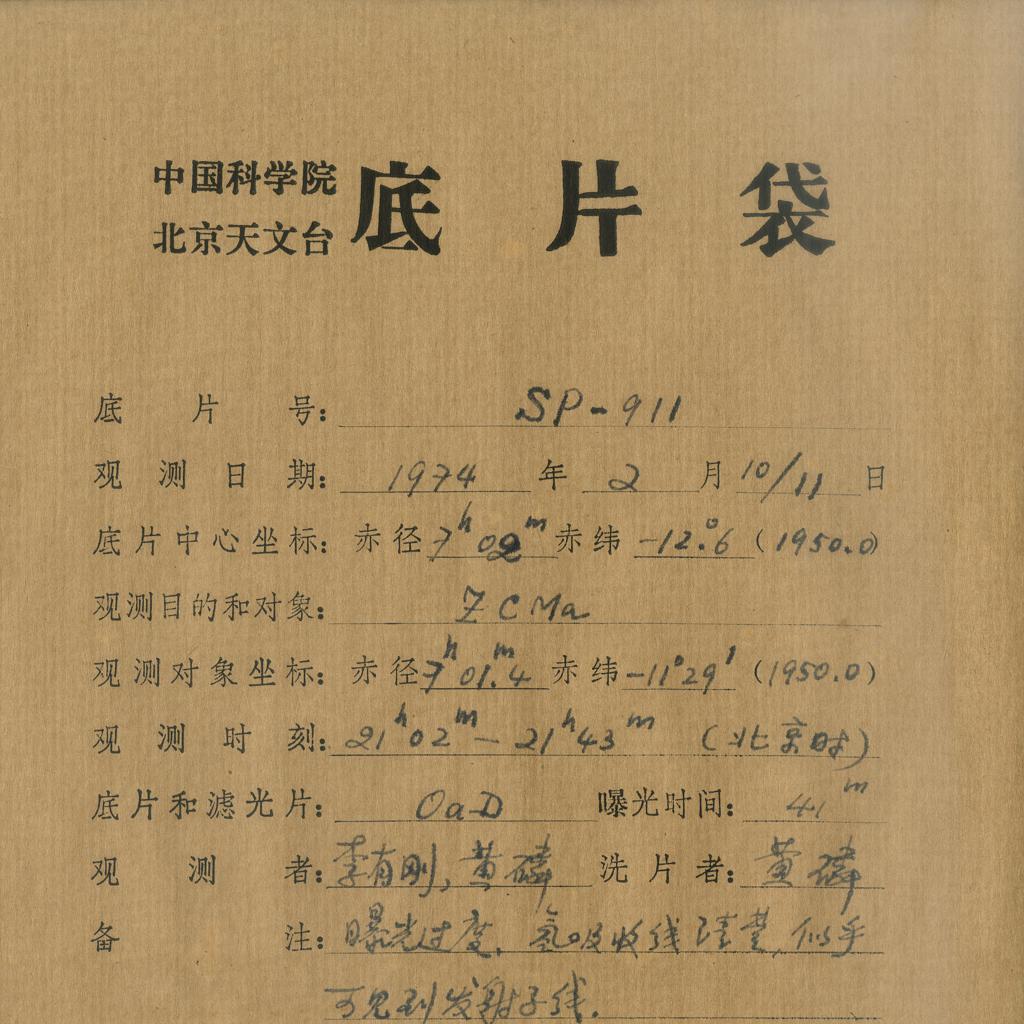 中国科学院
北京天文台
底片袋
底片号: SP-911
观测日期: 1974年2月10/11日
底片中心坐标: 赤径7ʰ02ᵐ赤纬-12°.6(1950.0)
观测目的和对象: Z CMa
观测对象坐标: 赤径7ʰ01ᵐ.4赤纬-11°29′(1950.0)
观测时刻: 21ʰ02ᵐ—21ʰ43ᵐ(北京时)
底片和滤光片: OaD 曝光时间: 41ᵐ
观测者: 李有刚,黄磷 洗片者: 黄磷
备注: 曝光过度,氢吸收线清楚,似乎
可见到发射子线.